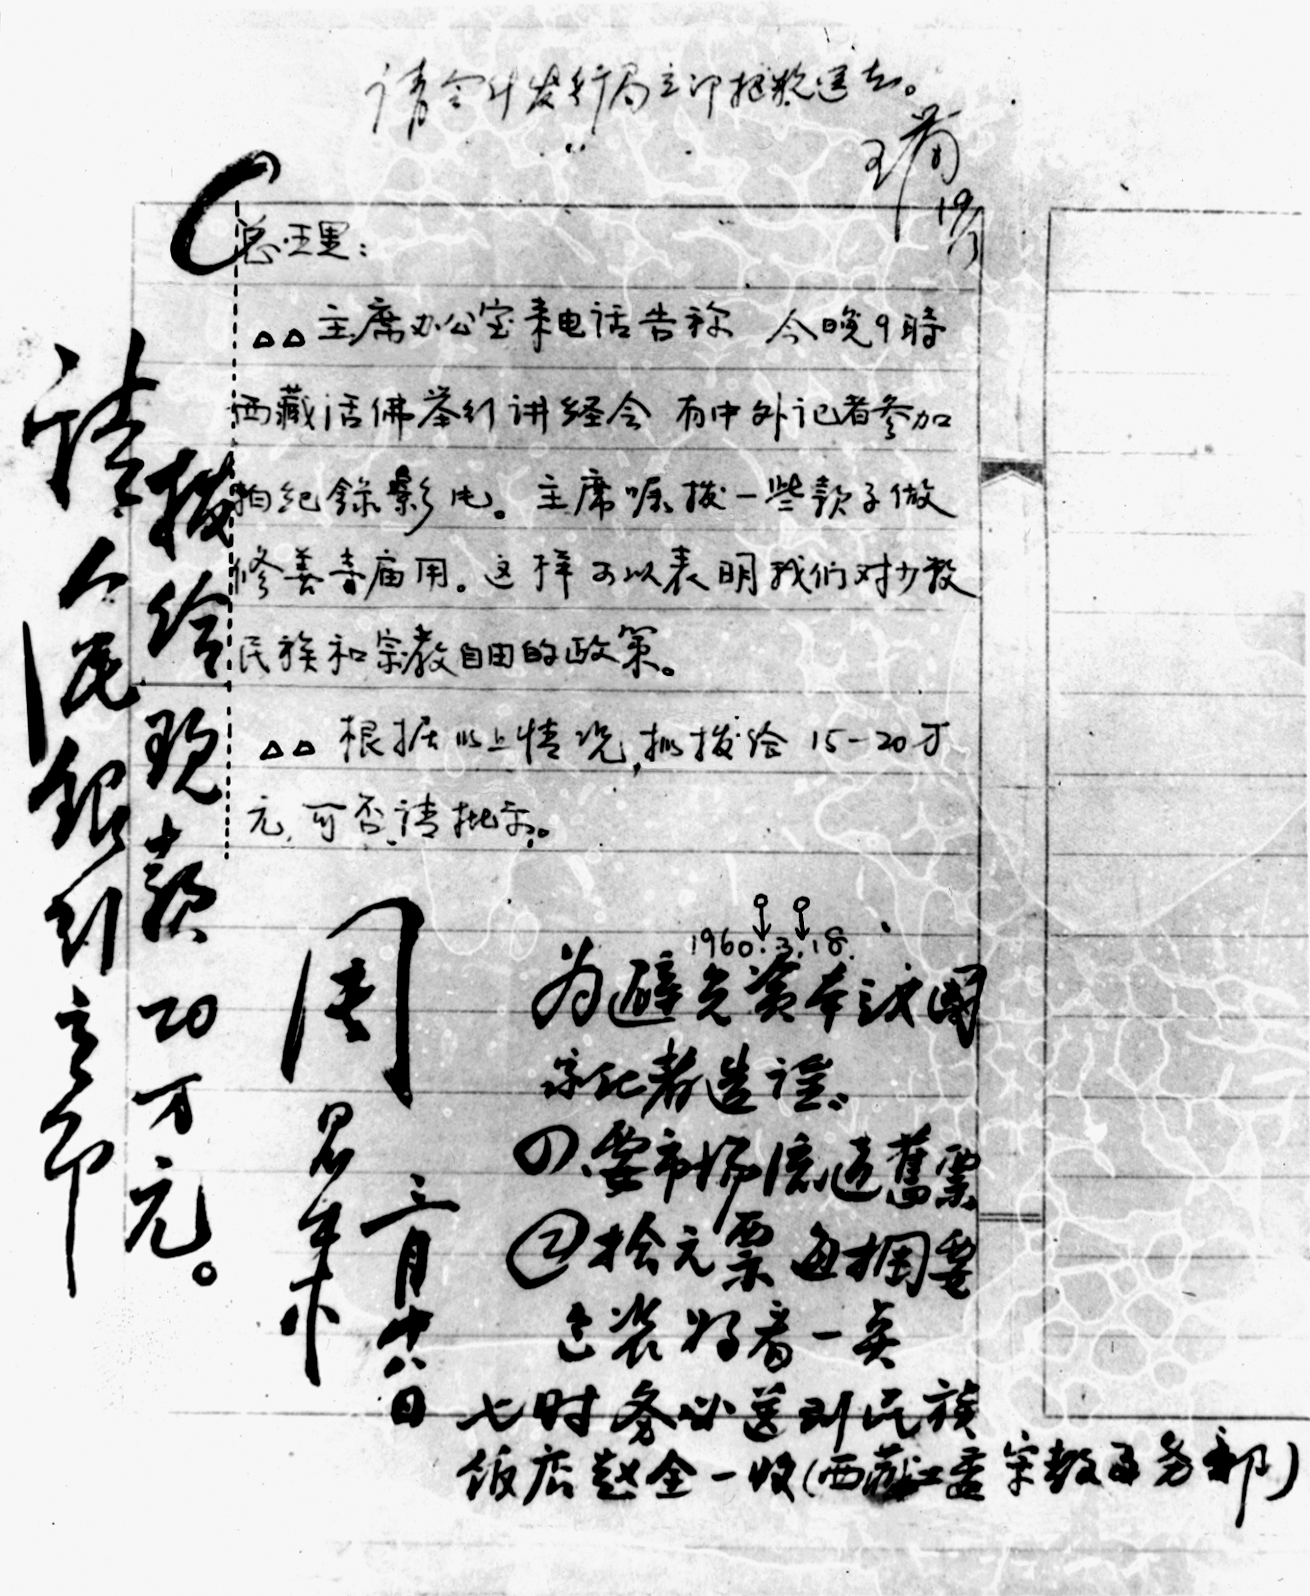 请会计发行局立即把款送去。
王
19/3
总理:
△△主席办公室来电话告称 今晚9時
西藏活佛举行讲经会 有中外记者参加
拍纪錄影片。主席嘱拨一些款子做
修善寺庙用。这样可以表明我们对少数
民族和宗教自由的政策。
△△根据以上情况,拟拨给15-20万
元,可否请批示。
1960.3.18.
请人民銀行立即
拨给现款20万元。
周恩来
三月十八日
为避免资本主义国
家记者造谣:
①、要市场流通舊票
②拾元票每捆要
包装好看一点
七时务必送到民族
饭店赵全一收(西藏工委宗教事务部)